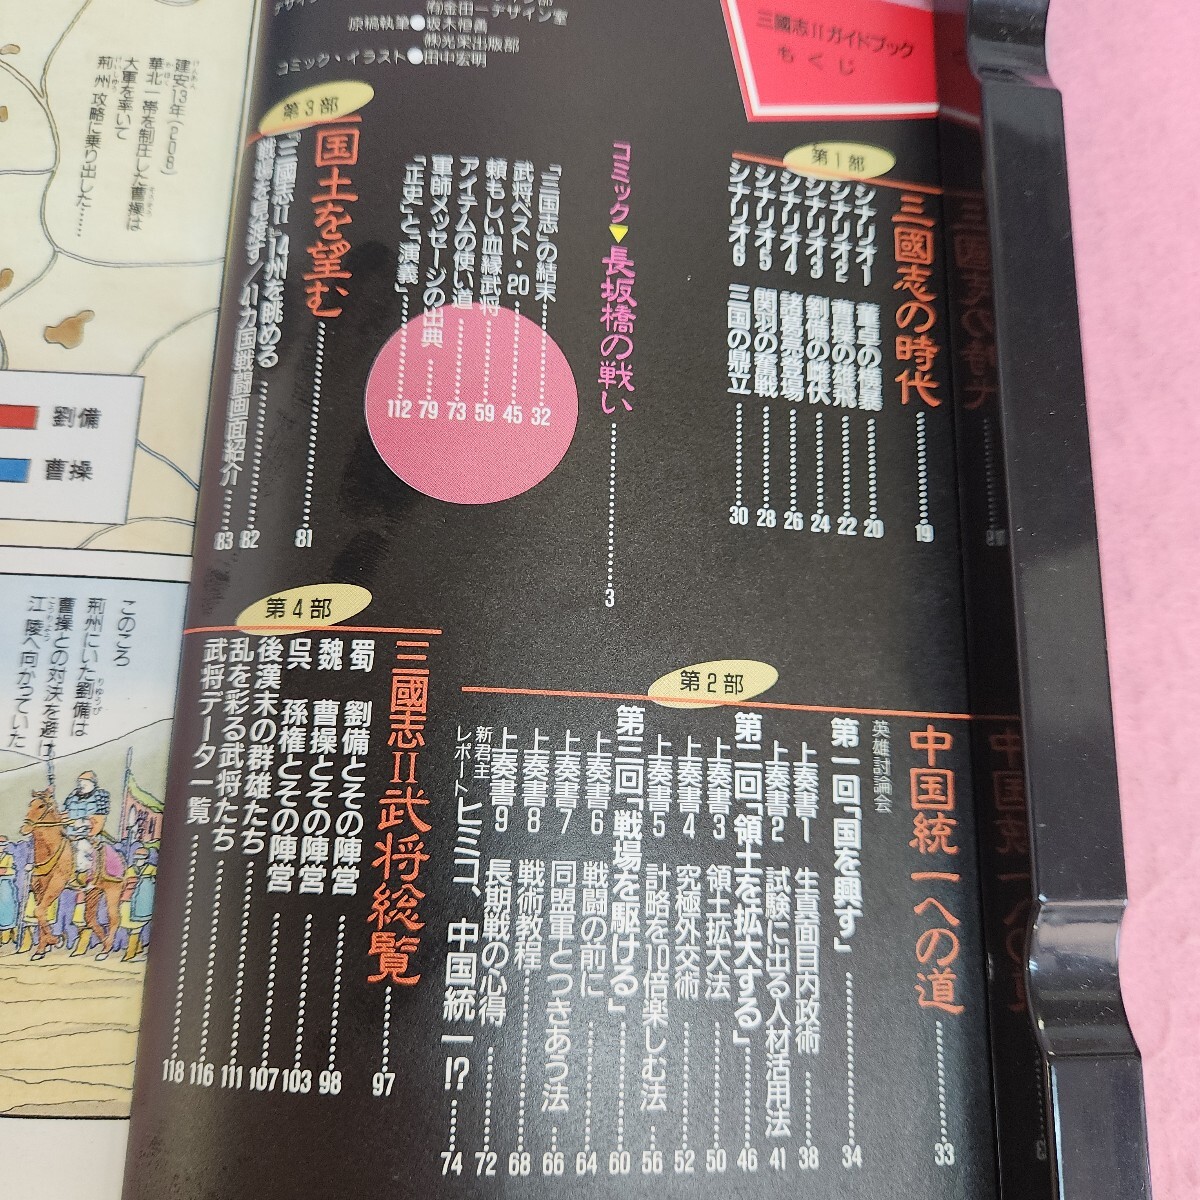 三國志IIガイドブック
もくじ
原稿執筆●坂本恒喬
㈱光栄出版部
コミック・イラスト●田中宏明
コミック▼長坂橋の戦い……3
第1部
三國志の時代……19
シナリオ1 董卓の横暴……20
シナリオ2 曹操の雄飛……22
シナリオ3 劉備の雌伏……24
シナリオ4 諸葛亮登場……26
シナリオ5 関羽の奮戦……28
シナリオ6 三国の鼎立……30
「三国志」の結末……32
武将ベスト・20……45
頼もしい血縁武将……59
アイテムの使い道……73
軍師メッセージの出典……79
「正史」と、「演義」……112
第2部
中国統一への道……33
英雄討論会
第一回「国を興す」……34
上奏書1 生真面目内政術……38
上奏書2 試験に出る人材活用法……41
第二回「領土を拡大する」……46
上奏書3 領土拡大法……50
上奏書4 究極外交術……52
上奏書5 計略を10倍楽しむ法……56
第三回「戦場を駆ける」……60
上奏書6 戦闘の前に……64
上奏書7 同盟軍とつきあう法……66
上奏書8 戦術教程……68
上奏書9 長期戦の心得……72
新君主レポート ヒミコ、中国統一!?……74
第3部
国土を望む……81
「三國志II」14州を眺める……82
戦場を見渡す/41カ国戦闘画面紹介……83
第4部
三國志II武将総覧……97
蜀 劉備とその陣営……98
魏 曹操とその陣営……103
呉 孫権とその陣営……107
後漢末の群雄たち……111
乱を彩る武将たち……116
武将データ一覧……118
建安13年(208)
華北一帯を制圧した曹操は
大軍を率いて
荊州攻略に乗り出した……
劉備
曹操
このころ
荊州にいた劉備は
曹操との対決を避け
江陵へ向かっていた